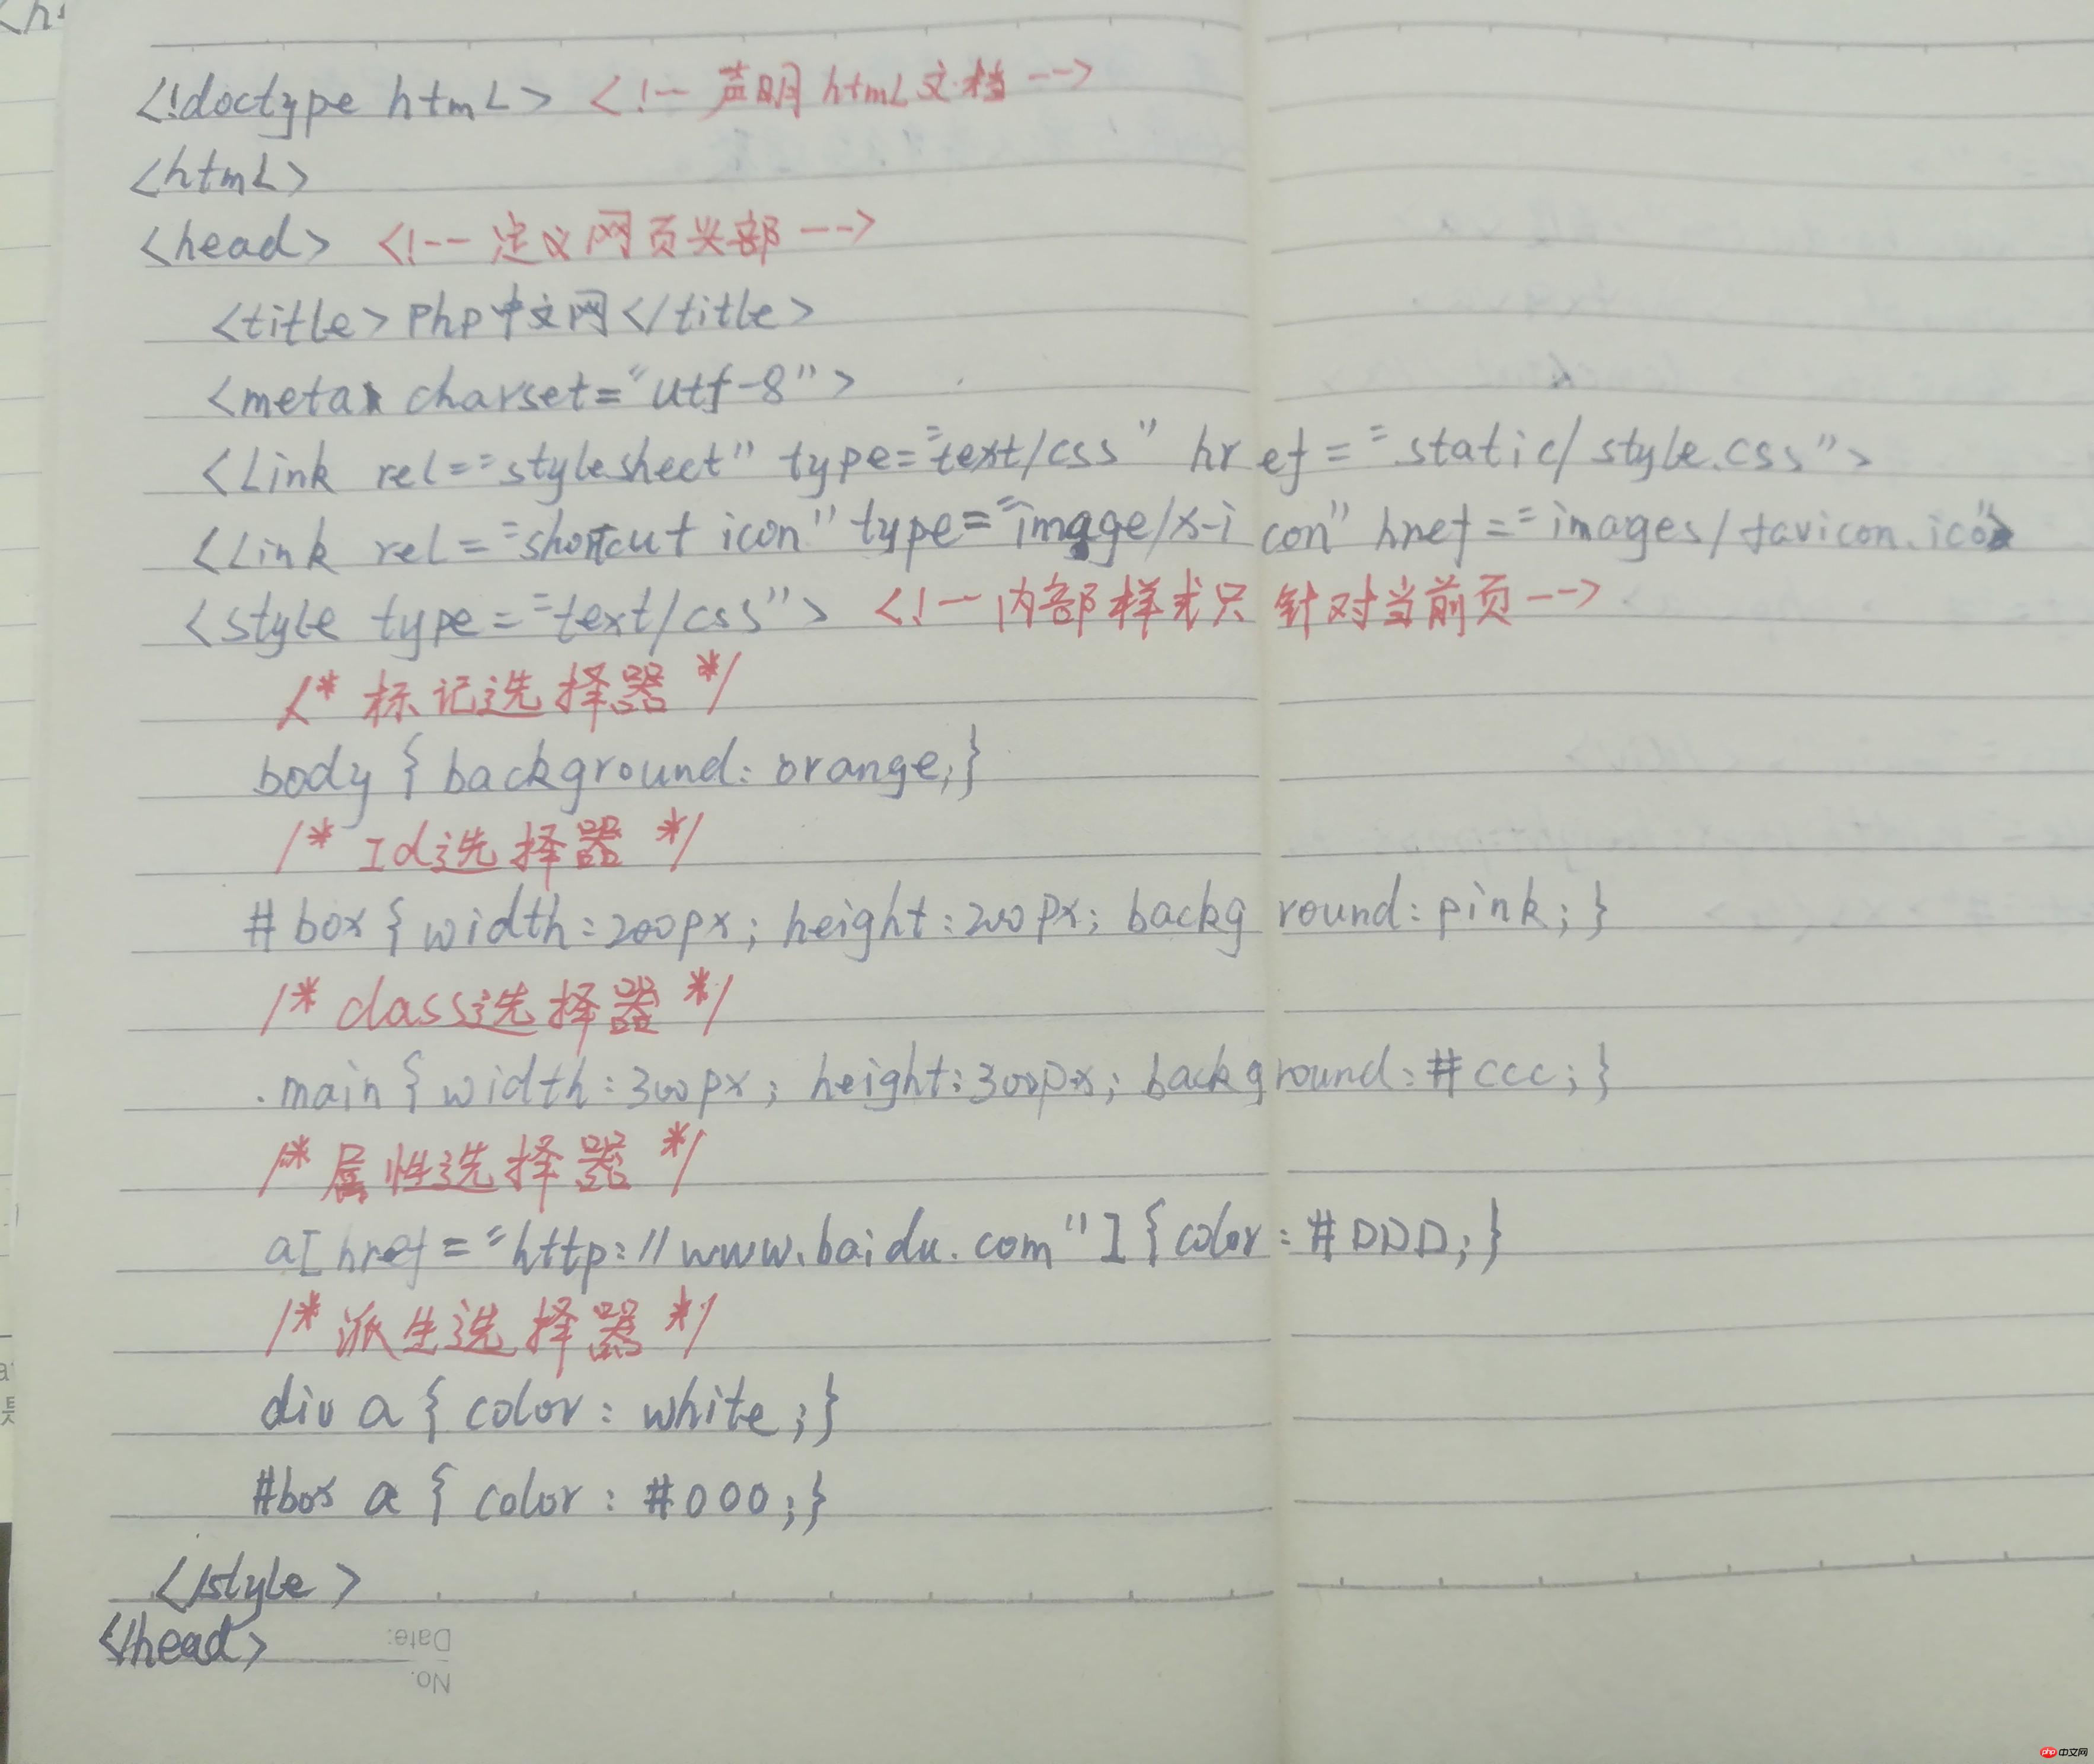 <!doctype html> <!-- 声明html文档 -->
<html>
<head> <!-- 定义网页头部 -->
<title>php中文网</title>
<meta charset="utf-8">
<link rel="stylesheet" type="text/css" href="static/style.css">
<link rel="shortcut icon" type="image/x-icon" href="images/favicon.ico">
<style type="text/css"> <!-- 内部样式只针对当前页 -->
/* 标记选择器 */
body {background: orange;}
/* Id选择器 */
#box{width:200px; height:200px; background:pink;}
/* class选择器 */
.main{width:300px; height:300px; background:#ccc;}
/* 属性选择器 */
a[href="http://www.baidu.com"]{color:#DDD;}
/* 派生选择器 */
div a{color: white;}
#box a {color: #000;}
</style>
</head>
Date:
No.
php中文网